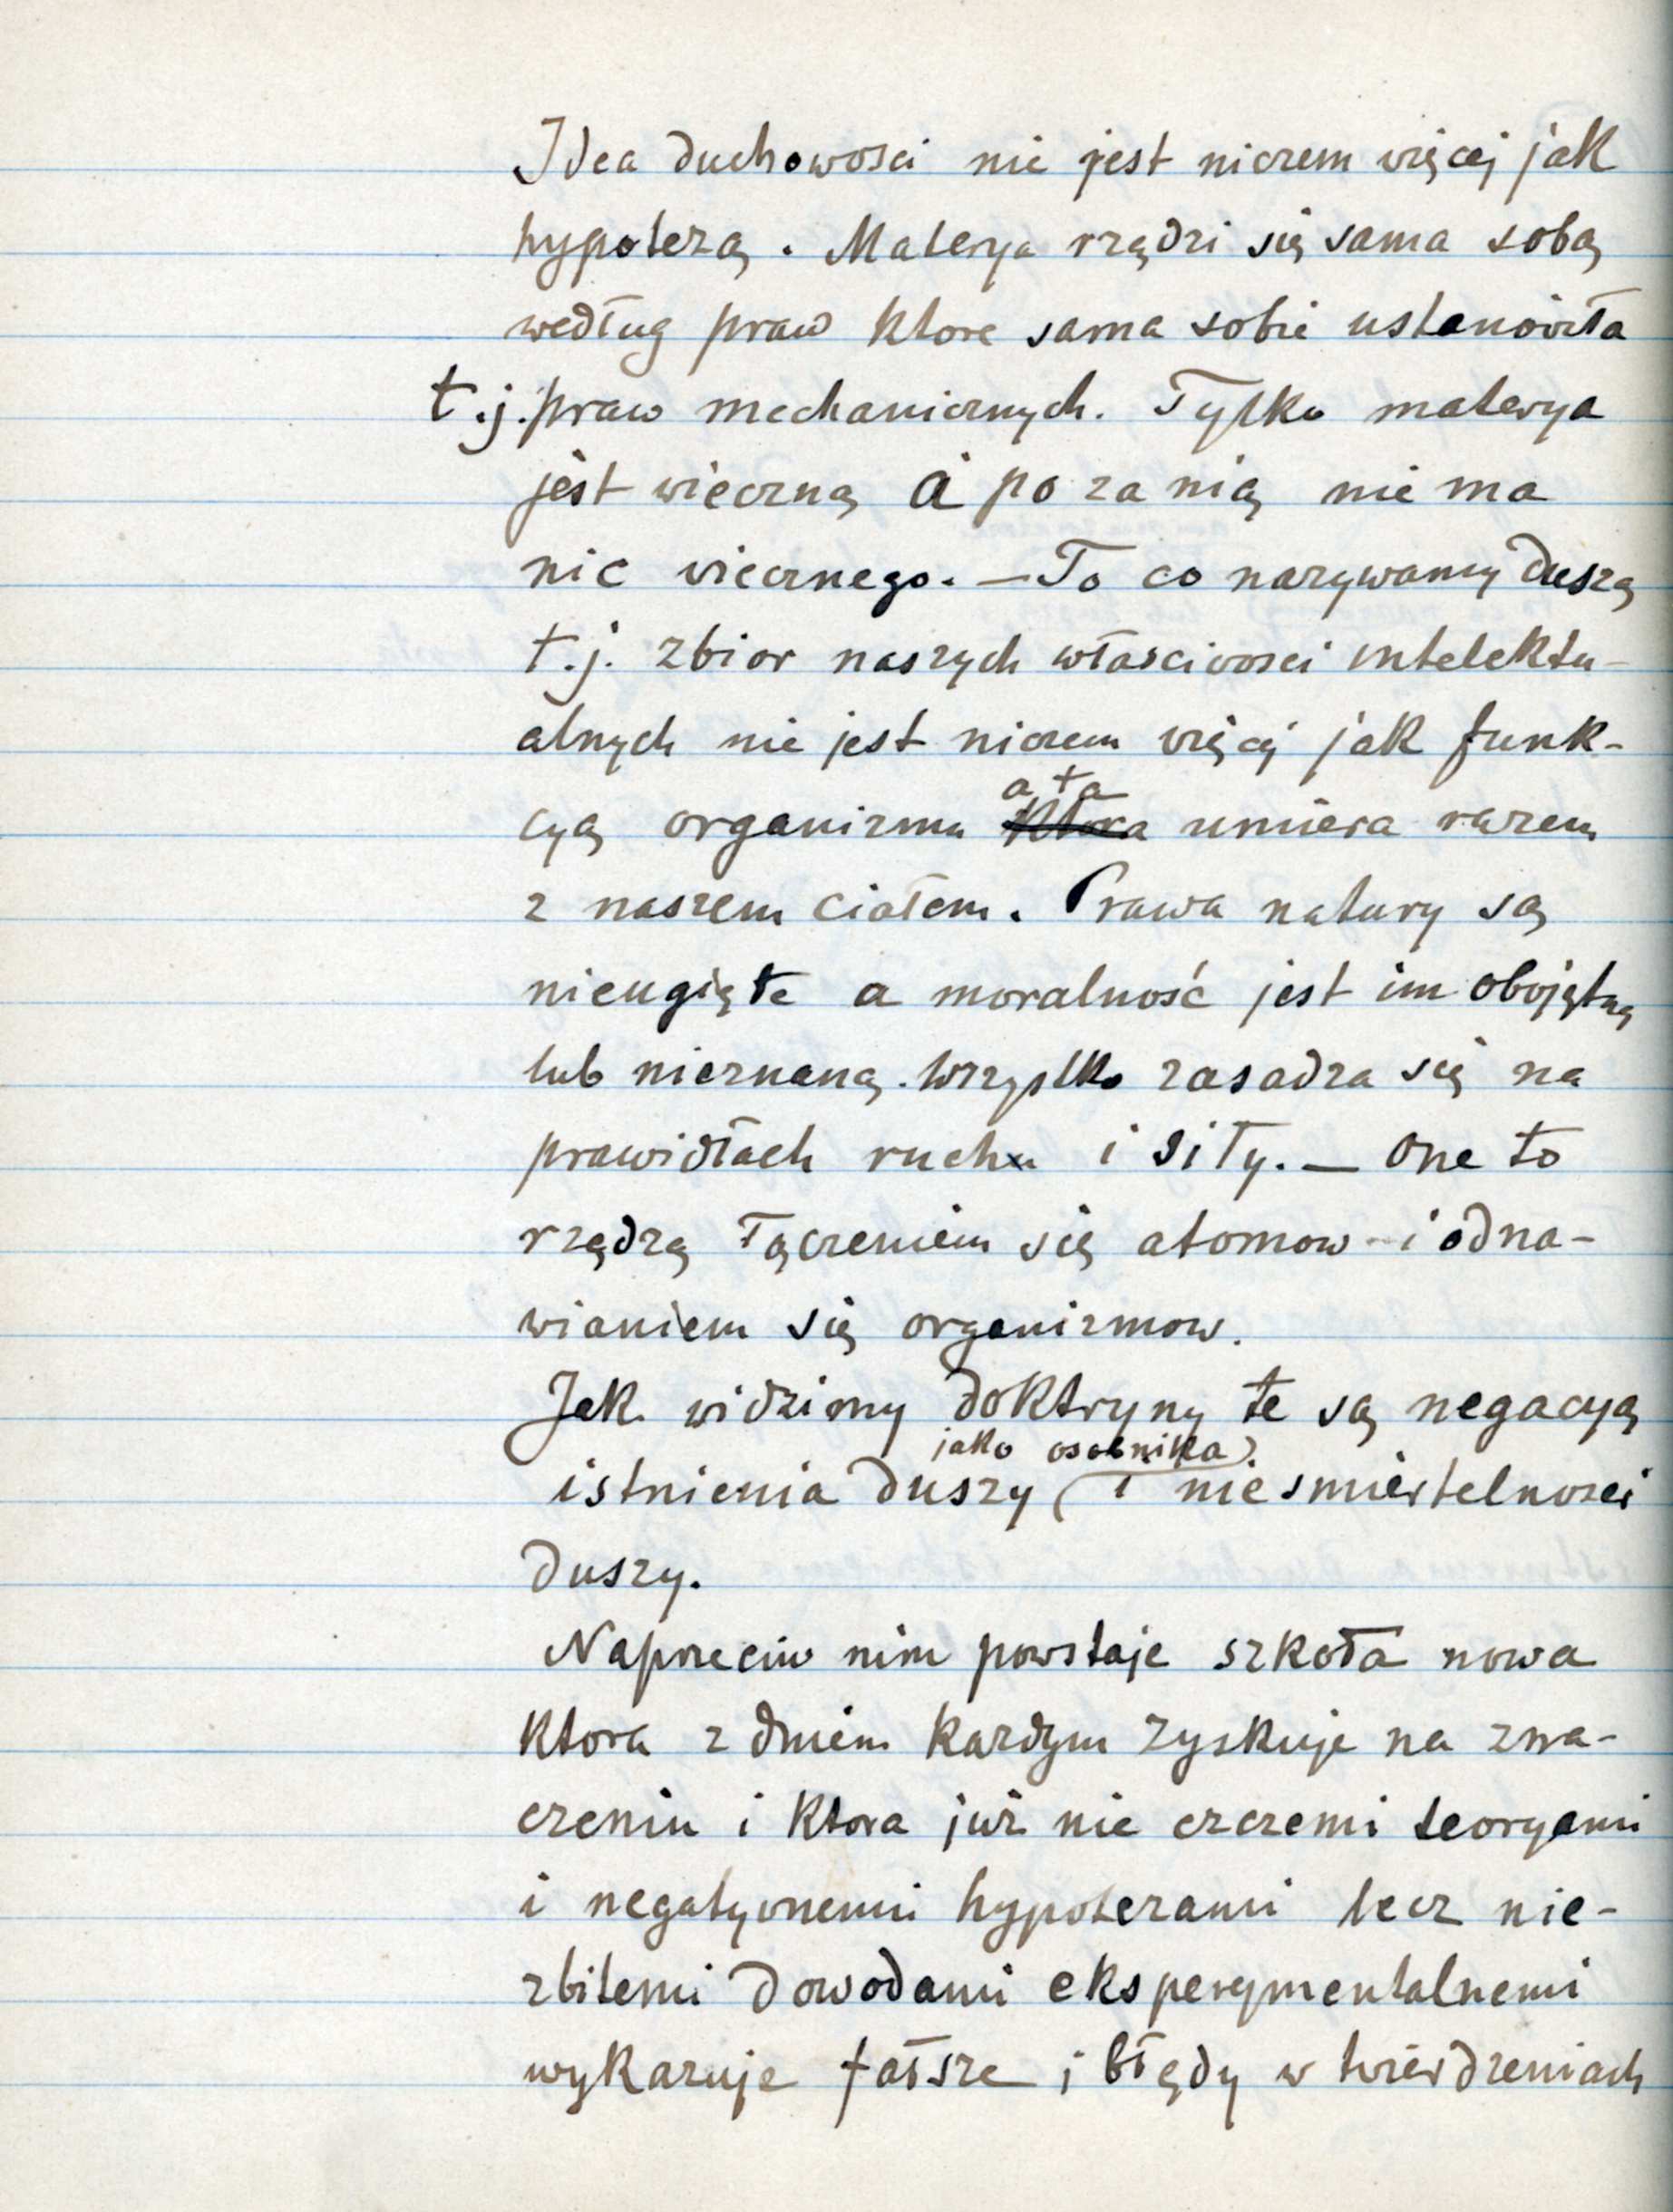 Idea duchowosci nie jest niczem więcej jak
hypotezą. Materya rządzi się sama sobą
według praw ktore sama sobie ustanowiła
t.j. praw mechanicznych. Tylko materya
jest wieczną a po za nią nie ma
nic wiecznego. — To co nazywamy duszą
t.j. zbior naszych własciwosci intelektu-
alnych nie jest niczem więcej jak funk-
a ta
cyą organizmu ktora umiera razem
z naszem ciałem. Prawa natury są
nieugięte a moralność jest im obojętną
lub nieznaną. Wszystko zasadza się na
prawidłach ruchu i siły. — One to
rządzą łączeniem się atomow i odna-
wianiem się organizmow.
Jak widzimy doktryny te są negacyą
jako osobnika)
istnienia duszy ( i niesmiertelnosci
duszy.
Naprzeciw nim powstaje szkoła nowa
ktora z dniem kazdym zyskuje na zna-
czeniu i ktora już nie czczemi teoryami
i negatywnemi hypotezami lecz nie-
zbitemi dowodami eksperymentalnemi
wykazuje fałsze i błędy w twierdzeniach